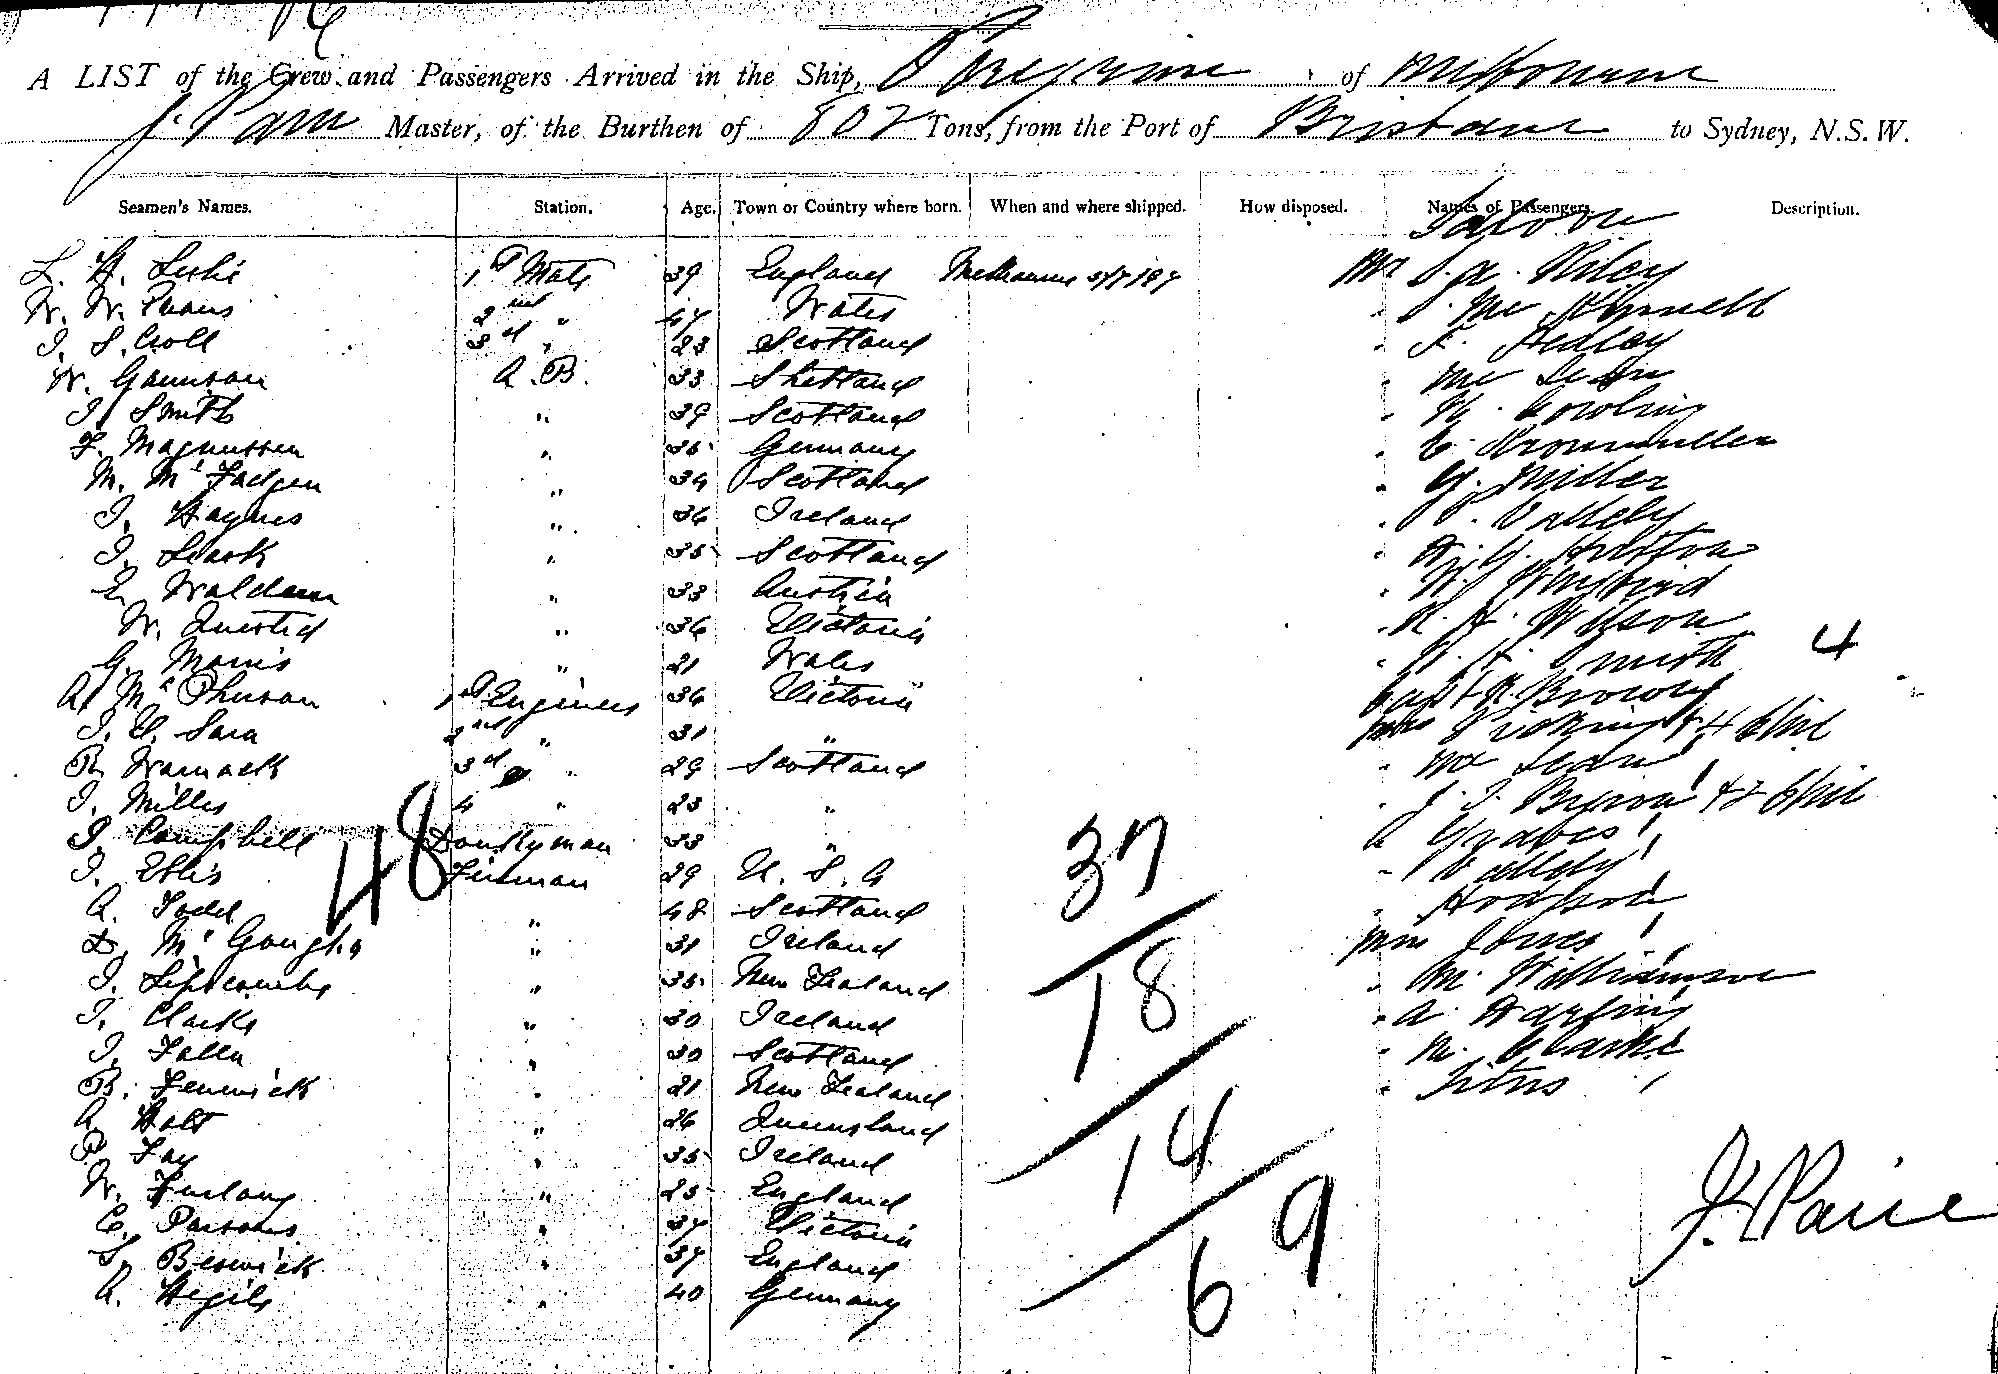 A LIST of the Crew and Passengers Arrived in the Ship, Peregrine of Melbourne
J. Pain Master, of the Burthen of 807 Tons, from the Port of Brisbane to Sydney, N.S.W.
Seamen's Names. Station. Age. Town or Country where born. When and where shipped. How disposed. Names of Passengers Description.
Saloon
L. H. Leslie 1st Mate 39 England Melbourne Mr A. Riley
W. W. Evans 2nd " 47 Wales
J. S. Croll 3rd " 23 Scotland " F. Hedley
W. Gaunson A.B. 33 Shetland
J. Smith " 39 Scotland " Cowling
F. Magnussen " 35 Germany "
M. McFadgen " 34 Scotland " G. Miller
J. Haynes " 36 Ireland " Vallely
J. Leask " 35 Scotland " Hutton
E. Waldem " 33 Austria "
W. Quested " 36 Victoria " Wilson
G. Morris " 21 Wales " Smith 4
A. McPherson 1st Engineer 36 Victoria Capt R. Brown
J. H. Sara 2nd " 31 " Mrs + 4 Chil
R. Warnack 3rd " 29 Scotland
J. Miller 4 " 23 " " J. J. Byron + 2 Chil
J. Campbell Donkeyman 33 " " Graves
J. Ellis Fireman 29 U.S.A " Vallely
A. Todd " 48 Scotland "
D. McGough " 31 Ireland Miss Jones
J. Lipscombe " 35 New Zealand " M. Williamson
J. Clarke " 30 Ireland " A. Harding
J. Falla " 30 Scotland " M. Clarke
B. Fenwick " 21 New Zealand " Titus
A. Holt " 26 Queensland
P. Fay " 35 Ireland
W. Furlong " 25 England
C. Parsons " 37 Victoria
S. Beswick " 37 England
A. Hegele " 40 Germany
48
37
18
14
69
J. Paine